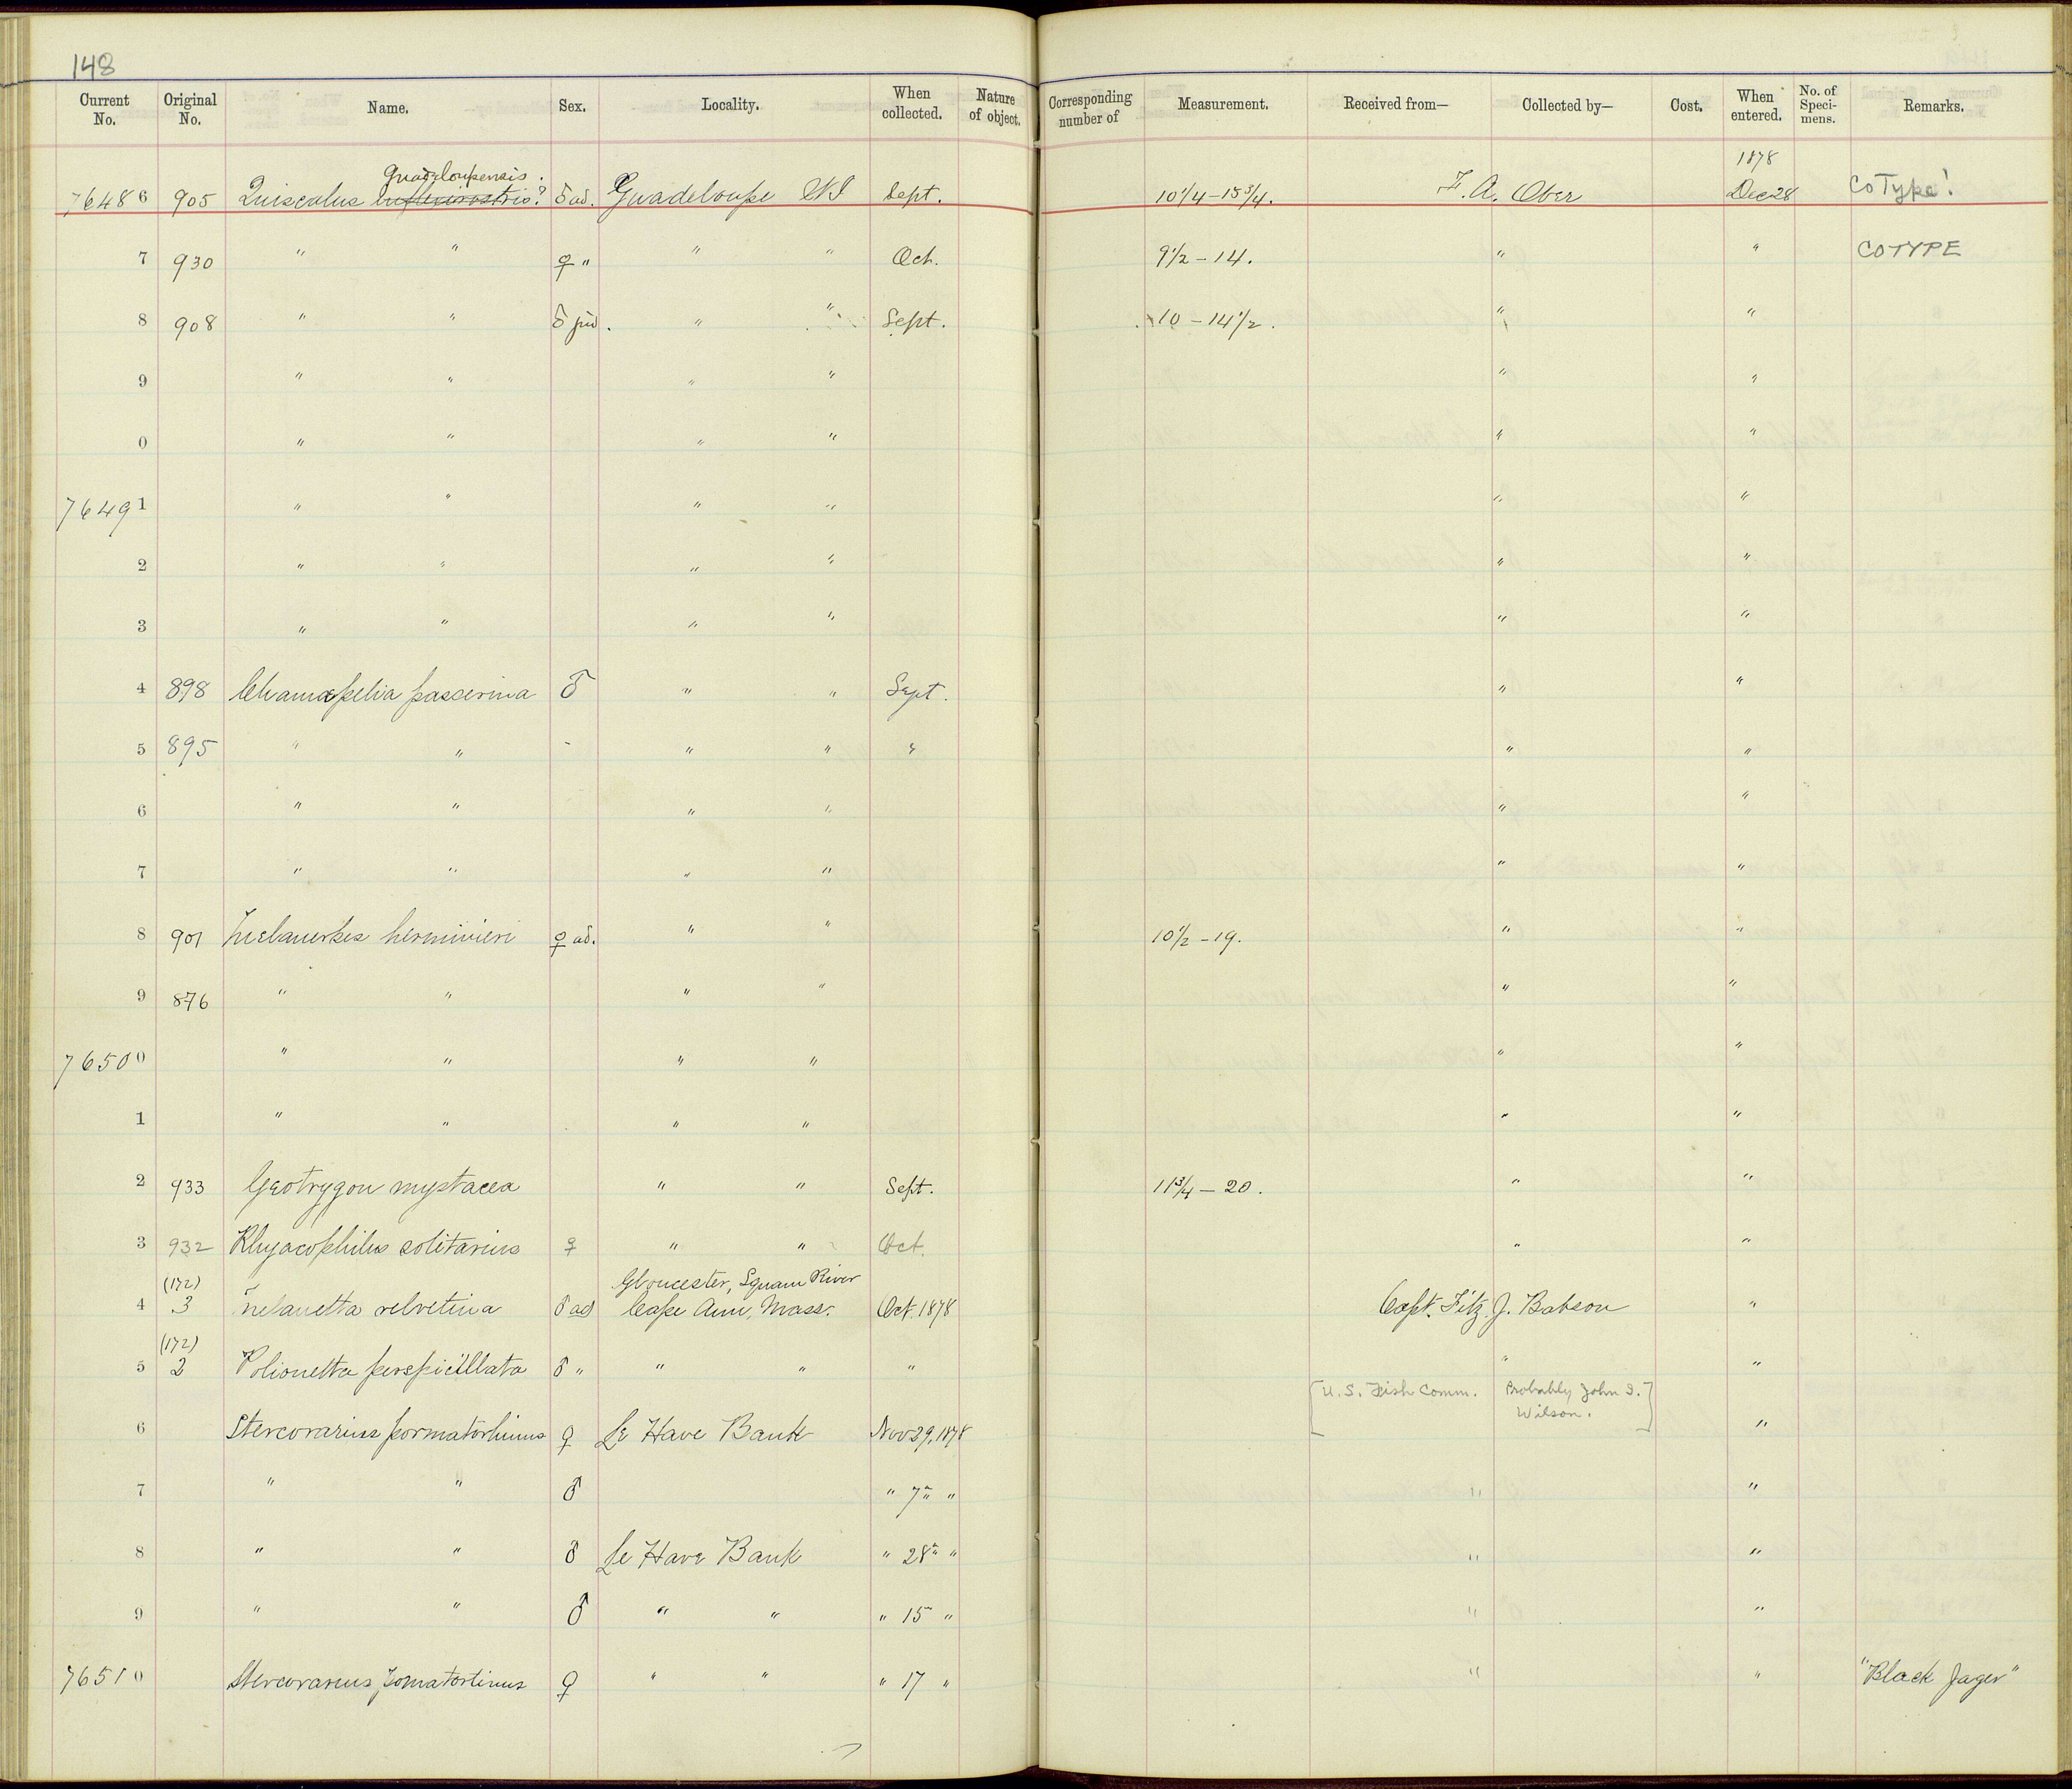 148
Current No. Original No. Name. Sex. Locality. When collected. Nature of object. Corresponding number of Measurement. Received from— Collected by— Cost. When entered. No. of Speci-mens. Remarks.
guadeloupensis. 1878
76486 905 Quiscalus inflexirostris? ♂ ad. Guadeloupe W I Sept. 10 1/4 - 15 3/4. F. A. Ober Dec 28 CoType!
7 930 " " ♀ " " " Oct. 9 1/2 - 14. " " COTYPE
8 908 " " ♂ juv. " " Sept. 10 - 14 1/2. " "
9 " " " " " "
0 " " " " " "
76491 " " " " " "
2 " " " " " "
3 " " " " " "
4 898 Chamæpelia passerina ♂ " " Sept. " "
5 895 " " - " " " " "
6 " " " " " "
7 " " " " " "
8 901 Melanerpes herminieri ♀ ad. " " 10 1/2 - 19. " "
9 876 " " " " " "
76500 " " " " " "
1 " " " " " "
2 933 Geotrygon mystacea " " Sept. 11 3/4 - 20. " "
3 932 Rhyacophilus solitarius ♀ " " Oct. " "
(172) Gloucester, Squam River
4 3 Melanetta velvetina ♂ ad Cape Ann, Mass. Oct. 1878 Capt. Fitz. J. Babson "
(172)
5 2 Polionetta perspicillata ♂ " " " " " "
[U.S. Fish Comm. Probably John S.
Wilson.]
6 Stercorarius pormatorhinus ♀ Le Have Bank Nov 29, 1878 "
7 " " ♂ " 7th " " "
8 " " ♂ Le Have Bank " 28th " " "
9 " " ♂ " " " 15 " " "
76510 Stercorarius pomatorhinus ♀ " " " 17 " " " "Black Jager"